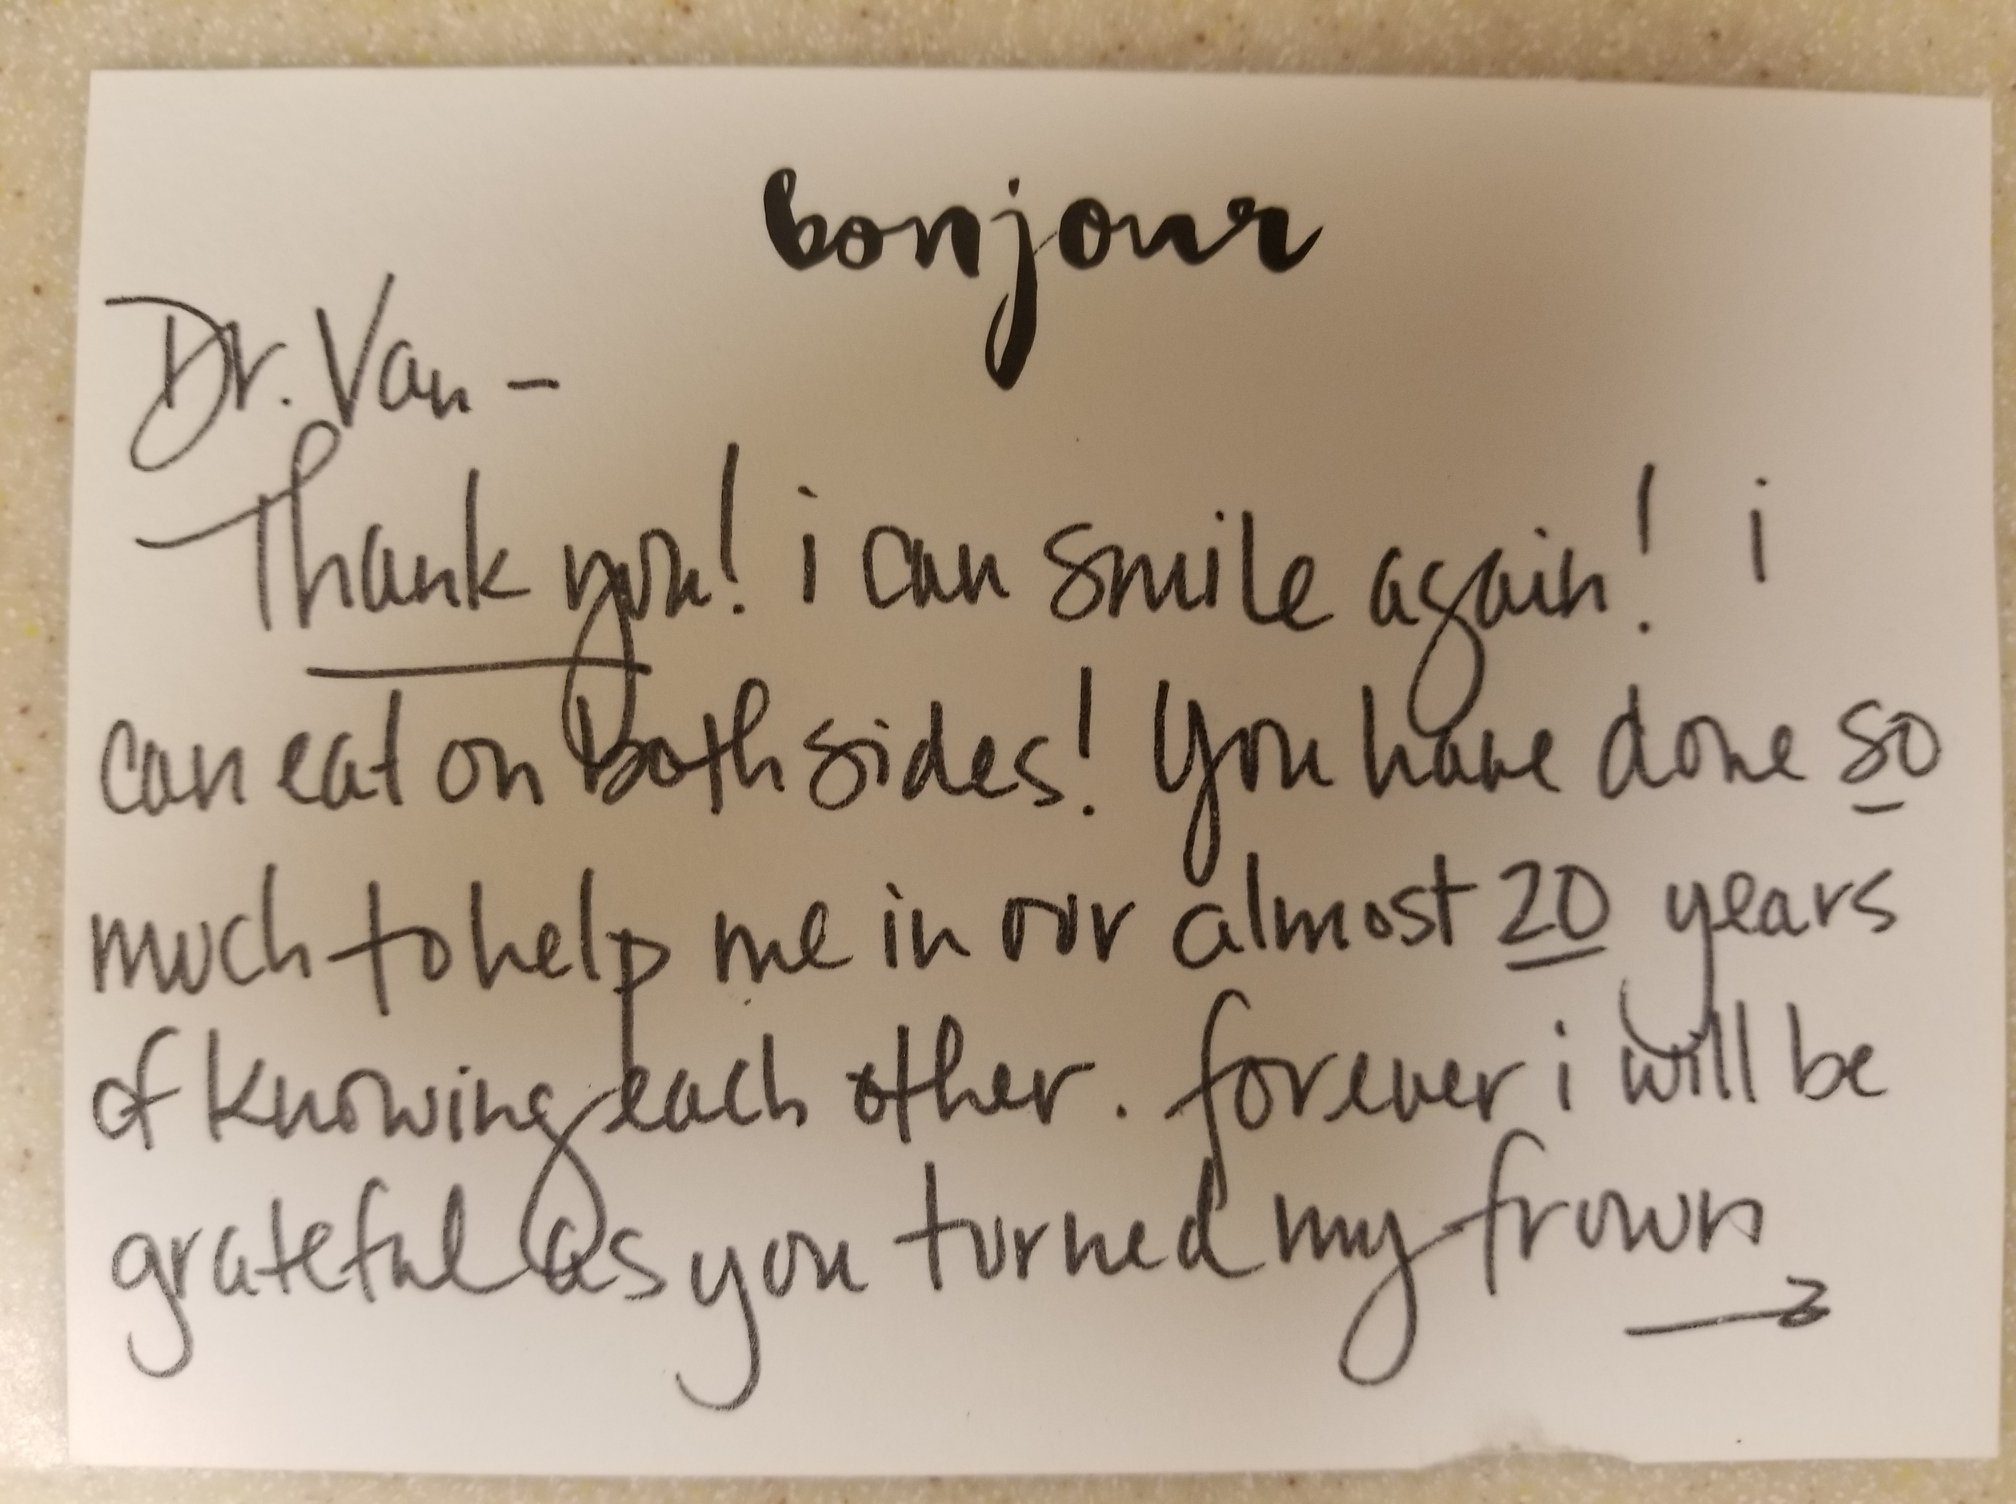 bonjour
Dr. Van -
Thank you! i can smile again! i
can eat on both sides! You have done so
much to help me in our almost 20 years
of knowing each other. forever i will be
grateful as you turned my frown
→